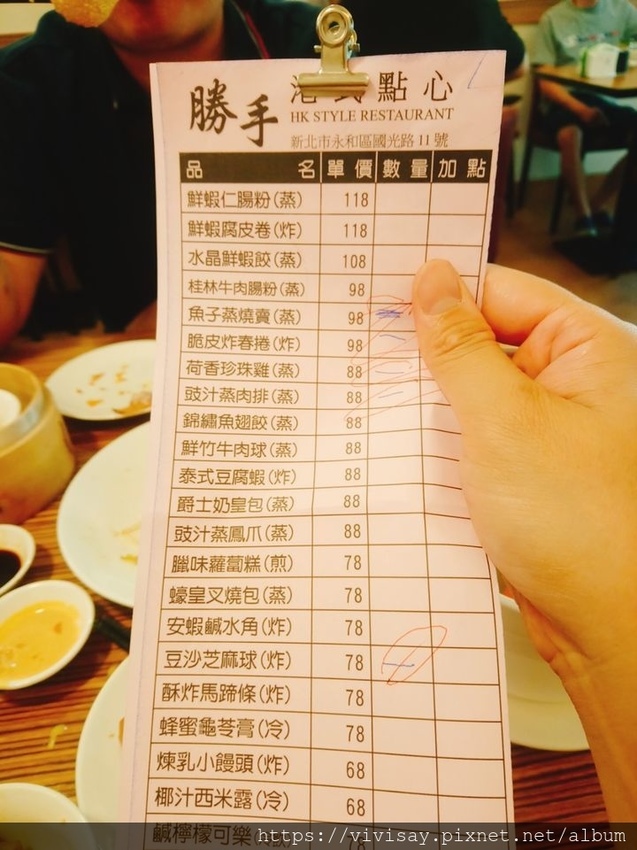 勝手 港式點心
HK STYLE RESTAURANT
新北市永和區國光路11號
品名 單價 數量 加點
鮮蝦仁腸粉(蒸) 118
鮮蝦腐皮卷(炸) 118
水晶鮮蝦餃(蒸) 108
桂林牛肉腸粉(蒸) 98
魚子蒸燒賣(蒸) 98
脆皮炸春捲(炸) 98
荷香珍珠雞(蒸) 88
豉汁蒸肉排(蒸) 88
錦繡魚翅餃(蒸) 88
鮮竹牛肉球(蒸) 88
泰式豆腐蝦(炸) 88
爵士奶皇包(蒸) 88
豉汁蒸鳳爪(蒸) 88
臘味蘿蔔糕(煎) 78
蠔皇叉燒包(蒸) 78
安蝦鹹水角(炸) 78
豆沙芝麻球(炸) 78
酥炸馬蹄條(炸) 78
蜂蜜龜苓膏(冷) 78
煉乳小饅頭(炸) 68
椰汁西米露(冷) 68
鹹檸檬可樂
https://vivisay.pixnet.net/album